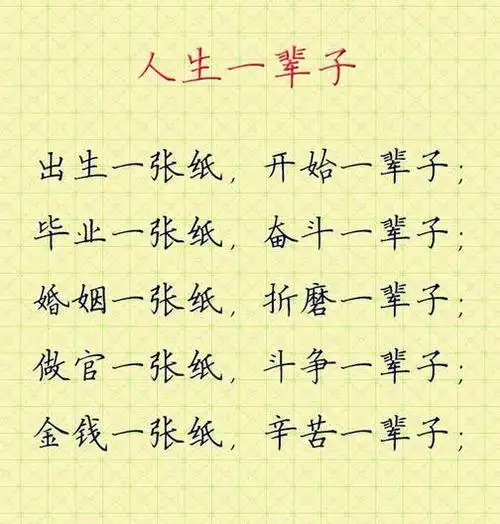 人生一辈子
出生一张纸，开始一辈子；
毕业一张纸，奋斗一辈子；
婚姻一张纸，折磨一辈子；
做官一张纸，斗争一辈子；
金钱一张纸，辛苦一辈子；